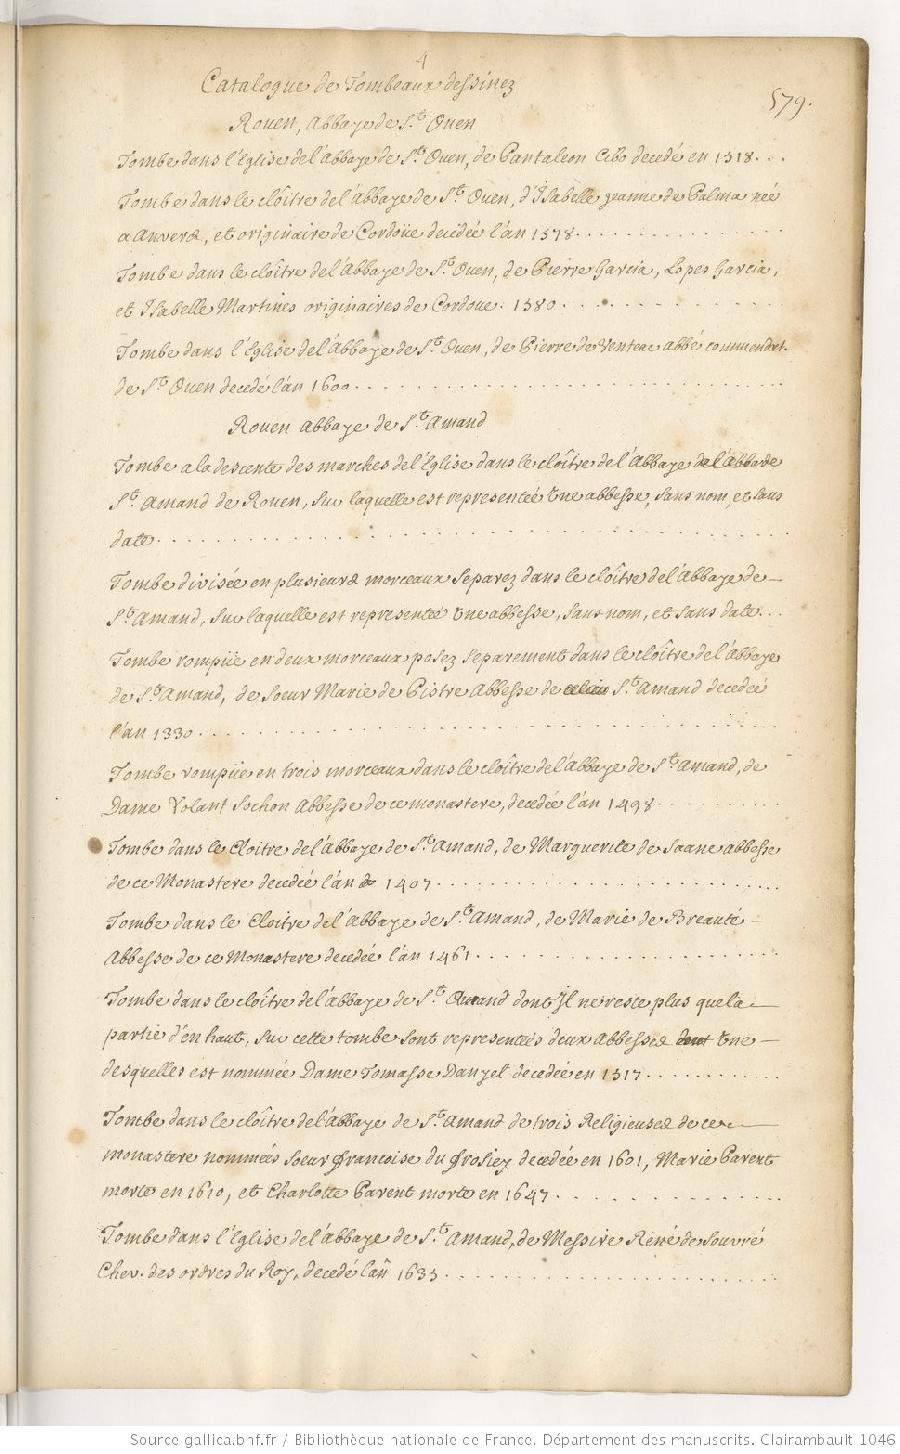 4
579.
Catalogue de Tombeaux dessinez
Rouen, Abbaye de St. Ouen
Tombe dans l'Eglise de l'abbaye de St. Ouen, de Pantaleon Cibo decedé en 1518...
Tombe dans le cloître de l'Abbaye de St. Ouen, d'Isabelle jeanne de Palma née
a Anvers, et originaire de Cordoüe decedée l'an 1578
Tombe dans le cloître de l'Abbaye de St. Ouen, de Pierre Garcia, Lopes Garcia,
et Isabelle Martines originaires de Cordoue. 1580
Tombe dans l'Eglise de l'Abbaye de St. Ouen, de Pierre de abbé
de St. Ouen decedé l'an 1600
Rouen Abbaye de St. Amand
Tombe a la descente des marches de l'Eglise dans le cloître de l'Abbaye de l'Abbaye
St. Amand de Rouen, sur laquelle est representée Une abbesse, sans nom, et sans
date
Tombe divisée en plusieurs morceaux separez dans le cloître de l'Abbaye de
St. Amand, sur laquelle est representé Une abbesse, sans nom, et sans date...
Tombe rompüe en deux morceaux posez separement dans le cloître de l'Abbaye
de St. Amand, de Soeur Marie de Pistre Abbesse de St. Amand decedée
l'an 1330
Tombe rompüe en trois morceaux dans le cloître de l'Abbaye de St. Amand, de
Dame Volant Sochon Abbesse de ce monastere, decedée l'an 1498
Tombe dans le Cloitre de l'Abbaye de St. Amand, de Marguerite de Saane abbesse
de ce Monastere decedée l'an 1407
Tombe dans le Cloitre de l'Abbaye de St. Amand, de Marie de Breauté
Abbesse de ce Monastere decedée l'an 1461
Tombe dans le cloître de l'abbaye de St. Amand dont Il ne reste plus que la
partie d'en haut, sur cette tombe sont representées deux abbesses dont Une
desquelles est nommée Dame Tomasse Danyel decedée en 1517
Tombe dans le cloître de l'abbaye de St. Amand de trois Religieuses de ce
monastere nommées Soeur françoise du decedée en 1601, Marie Parent
morte en 1610, et Charlotte Parent morte en 1647
Tombe dans l'Eglise de l'abbaye de St. Amand, de Messire René de Souvré
Chev. des ordres du Roy, decedé l'an 1635
Source gallica.bnf.fr / Bibliothèque nationale de France. Département des manuscrits. Clairambault 1046